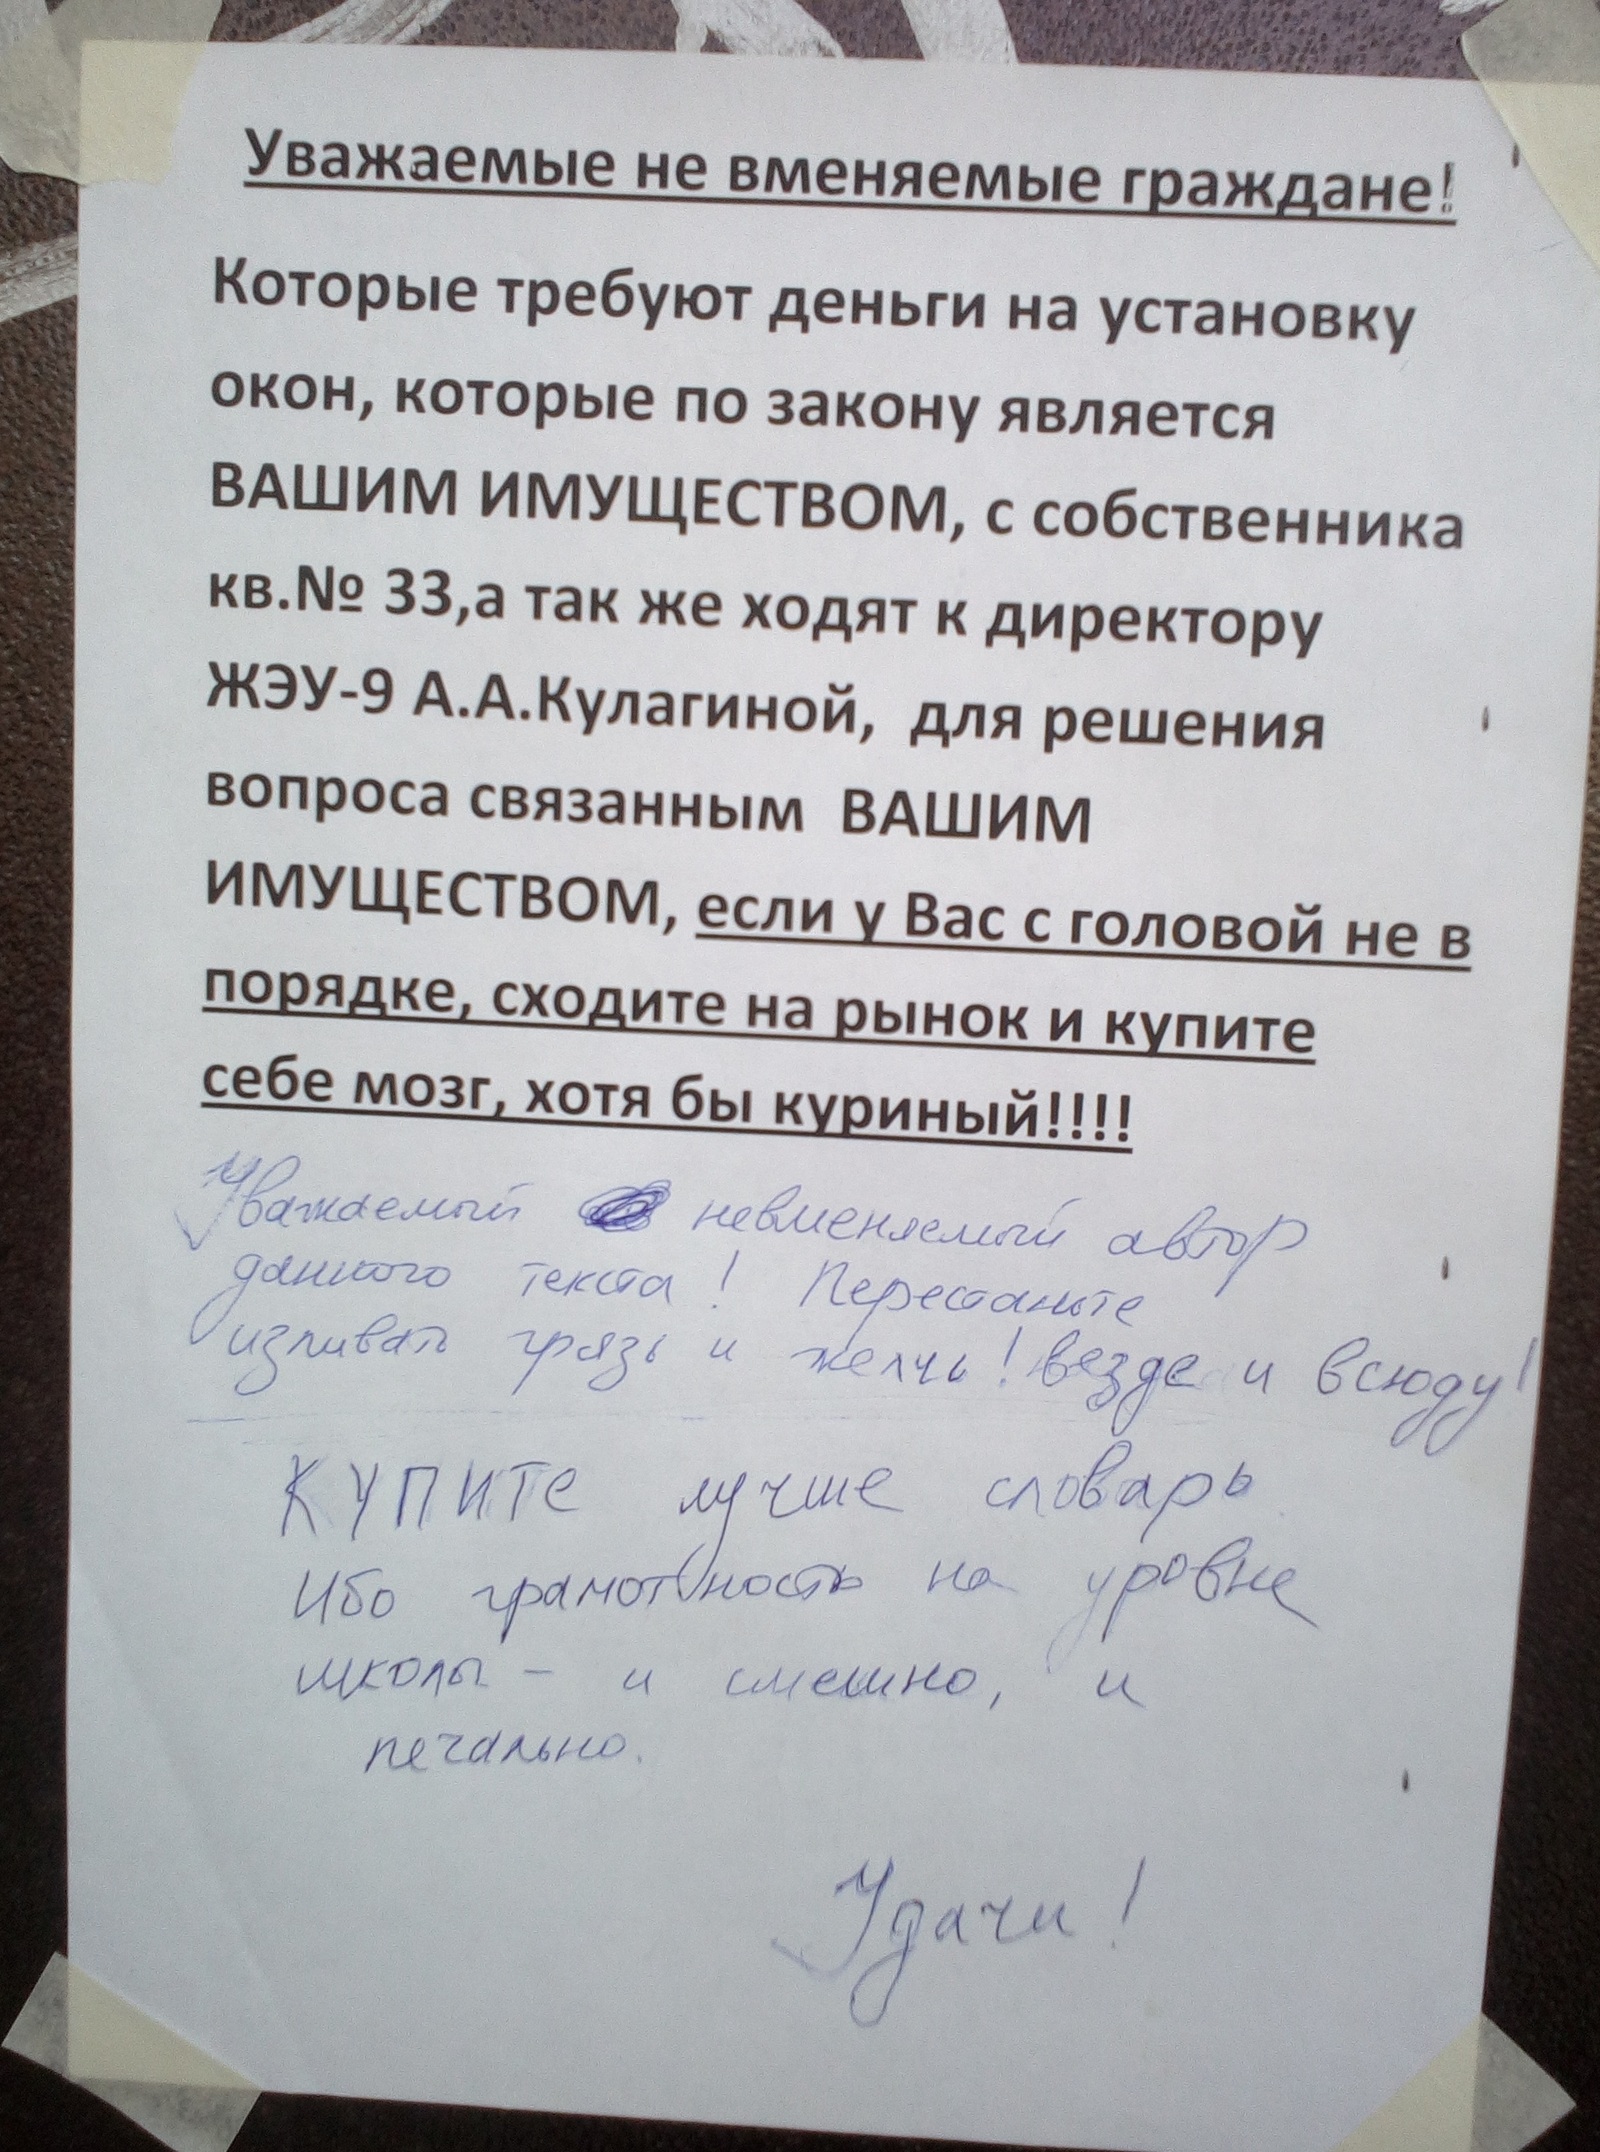 Уважаемые не вменяемые граждане!
Которые требуют деньги на установку
окон, которые по закону является
ВАШИМ ИМУЩЕСТВОМ, с собственника
кв.№ 33,а так же ходят к директору
ЖЭУ-9 А.А.Кулагиной,  для решения
вопроса связанным  ВАШИМ
ИМУЩЕСТВОМ, если у Вас с головой не в
порядке, сходите на рынок и купите
себе мозг, хотя бы куриный!!!!
Уважаемый невменяемый автор
данного текста! Перестаньте
изливать грязь и желчь! везде и всюду!
КУПИТе лучше словарь
Ибо грамотность на уровне
школы - и смешно, и
печально.
Удачи!